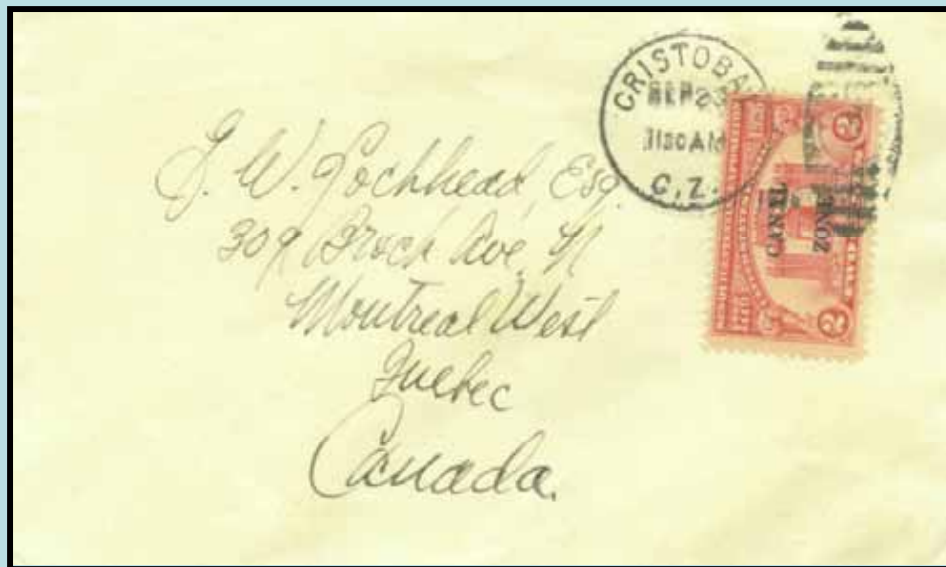 CRISTOBAL
SEP 23
11 30 AM
C.Z.
CANAL
ZONE
2
2
TWO
J. W. Lochhead, Esq.
309 Brock Ave. N
Montreal West
Quebec
Canada.